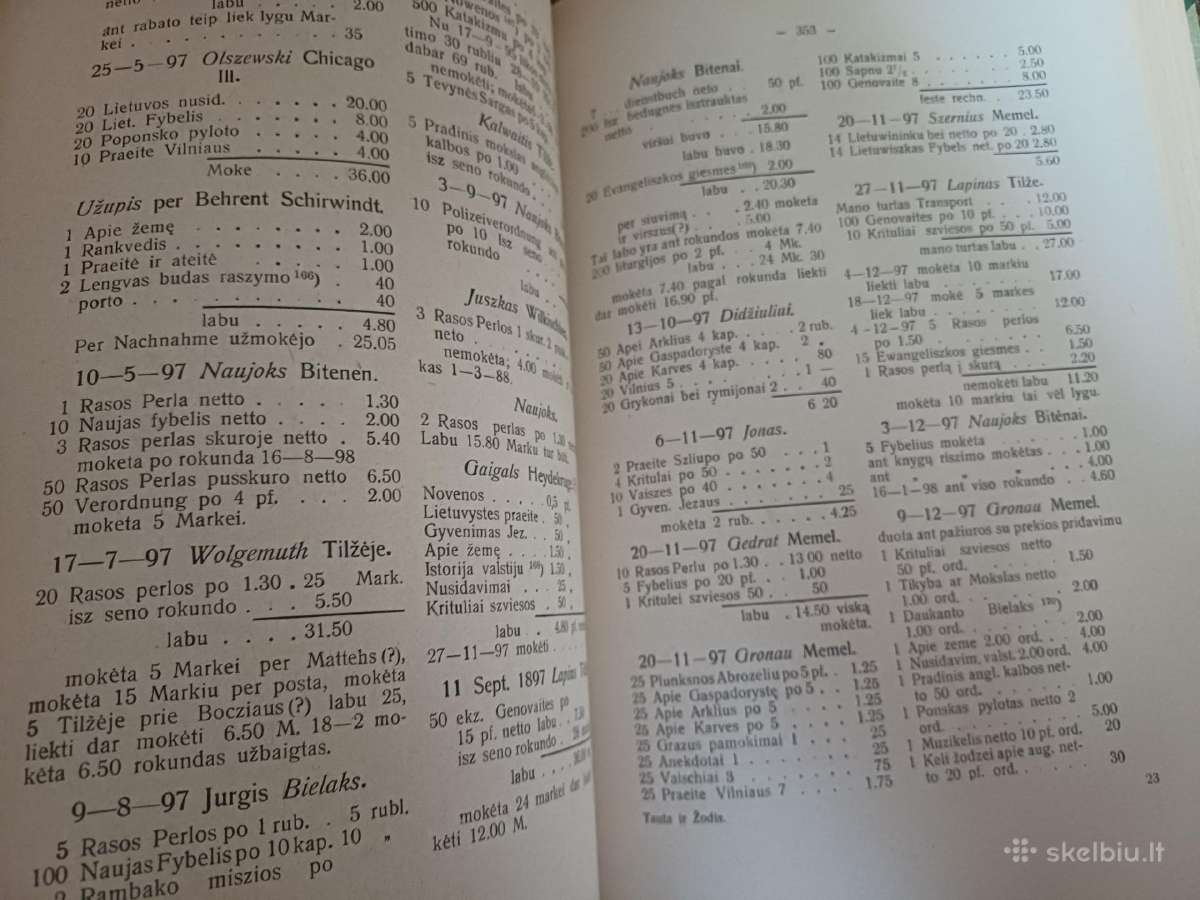 netto . . . .
labu . . 2.00
ant rabato teip liek lygu Mar-
kei . . . . . . . . 35
25—5—97 Olszewski Chicago
III.
20 Lietuvos nusid. . . . . . . 20.00
20 Liet. Fybelis . . . . . . 8.00
20 Poponsko pyloto . . . . 4.00
10 Praeite Vilniaus . . . . . 4.00
Moke . . . . 36.00
Užupis per Behrent Schirwindt.
1 Apie žemę . . . . . . . 2.00
1 Rankvedis . . . . . . . . 1.00
1 Praeitė ir ateitė . . . . . 1.00
2 Lengvas budas raszymo ¹⁶⁶) . 40
porto . . . . . . . . . 40
labu . . . . . 4.80
Per Nachnahme užmokėjo . 25.05
10—5—97 Naujoks Bitenen.
1 Rasos Perla netto . . . . . 1.30
10 Naujas fybelis netto . . . . 2.00
3 Rasos perlas skuroje netto . 5.40
moketa po rokunda 16—8—98
50 Rasos Perlas pusskuro netto 6.50
50 Verordnung po 4 pf. . . . 2.00
moketa 5 Markei.
17—7—97 Wolgemuth Tilžėje.
20 Rasos perlos po 1.30 . 25 Mark.
isz seno rokundo . . . 5.50
labu . . . . 31.50
mokėta 5 Markei per Mattehs (?),
mokėta 15 Markiu per posta, mokėta
5 Tilžėje prie Bocziaus (?) labu 25,
liekti dar mokėti 6.50 M. 18—2 mo-
kėta 6.50 rokundas užbaigtas.
9—8—97 Jurgis Bielaks.
5 Rasos Perlos po 1 rub. . 5 rubl.
100 Naujas Fybelis po 10 kap. 10 „
2 Rambako miszios po
500 Katakizma po
Nu 17—9—95
timo 30 rubliu 28
dabar 69 rub.
nemokėti; mokėta
5 Tevynės Sargas po
Kalwaitis
5 Pradinis mokslas
kalbos po 1.00
isz seno rokundo
3—9—97 Naujoks
10 Polizeiverordnung
po 10 Isz seno
rokundo
labu
Juszkas
3 Rasos Perlos 1 skur. 2
netto . . .
nemokėta; 4.00
kas 1—3—88.
Naujoks.
2 Rasos perlas po 1.30
Labu 15.80 Marku tur
Gaigals Heydekrug
Novenos . . . . . 0,5 pf.
Lietuvystes praeite . 50 „
Gyvenimas Jez. . . 50 „
Apie žemę . . . . 1.50 „
Istorija valstiju ¹⁶⁸) 1.50 „
Nusidavimai . . . 25 „
Krituliai szviesos . 50 „
labu . . 4.80
27—11—97 mokėti
11 Sept. 1897 Lapins
50 ekz. Genovaites po
15 pf. netto labu . . 7.50
isz seno rokundo .
labu . . . .
mokėta 24 markei dar
kėti 12.00 M.
— 353 —
Naujoks Bitenai.
7 . . dienstbuch neto . . 50 pf.
200 isz bedugnes isstrauktas
netto . . . . . . 2.00
viršui buvo . . 15.80
labu buvo . 18.30
20 Evangeliszkos giesmes ¹⁶⁹) 2.00
labu . . 20.30
per siuvimą . . . . 2.40 moketa
ir virszus(?) . . . 5.00
Tai labu yra ant rokundos mokėta 7.40
200 liturgijos po 2 pf. . 4 Mk.
labu . . . 24 Mk. 30
mokėta 7.40 pagal rokunda liekti
dar mokėti 16.90 pf.
13—10—97 Didžiuliai.
50 Apei Arklius 4 kap. . . . 2 rub.
50 Apie Gaspadoryste 4 kap. 2 „
20 Apie Karves 4 kap. . . . 80
20 Vilnius 5 . . . . . . 1 —
20 Grykonai bei rymijonai 2 . . 40
6 20
6—11—97 Jonas.
2 Praeite Szliupo po 50 . . . 1
4 Kritulai po 50 . . . . . 2
10 Vaiszes po 40 . . . . . 4
1 Gyven. Jezaus . . . . . 25
mokėta 2 rub. . . . . . 4.25
20—11—97 Gedrat Memel.
10 Rasos Perlu po 1.30 . 13 00 netto
5 Fybelius po 20 pf. . . 1.00
1 Kritulei szviesos 50 . . 50
labu . 14.50 viską
mokėta.
20—11—97 Gronau Memel.
25 Plunksnos Abrozeliu po 5 pf. . 1.25
25 Apie Gaspadorystę po 5 . . 1.25
25 Apie Arklius po 5 . . . . 1.25
25 Apie Karves po 5 . . . . 1.25
25 Grazus pamokimai 1 . . . 25
25 Anekdotai 1 . . . . . . 25
25 Vaischiai 3 . . . . . . 75
25 Praeite Vilniaus 7 . . . . 1.75
Tauta ir Žodis.
100 Katakizmai 5 . . . . . 5.00
100 Sapnu 2¹/₂ . . . . . . 2.50
100 Genovaite 8 . . . . . . 8.00
feste rechn. . . 23.50
20—11—97 Szernius Memel.
14 Lietuwininku bei netto po 20 . 2.80
14 Lietuwiszkas Fybels net. po 20 2.80
5.60
27—11—97 Lapinas Tilže.
Mano turtas Transport . . . 12.00
100 Genovaites po 10 pf. . . . 10.00
10 Krituliai szviesos po 50 pf. 5.00
mano turtas labu . . 27.00
4—12—97 mokėta 10 markiu
liekti labu . . . . . . 17.00
18—12—97 mokė 5 markes
liek labu . . . . . . . 12.00
4 -12—97 5 Rasos perlos
po 1.50 . . . . . . . 6.50
15 Ewangeliszkos giesmes . . . 1.50
1 Rasos perlą į skurą . . . . 2.20
nemokėti labu 11.20
mokėta 10 markiu tai vėl lygu.
3—12—97 Naujoks Bitėnai.
5 Fybelius mokėta . . . . . 1.00
ant knygų riszimo mokėtas . . 1.00
ant „ „ „ . . 4.00
16—1—98 ant viso rokundo . . 4.60
9—12—97 Gronau Memel.
duota ant pažiuros su prekios pridavimu
1 Krituliai szviesos netto
50 pf. ord. . . . . . . 1.50
1 Tikyba ar Mokslas netto
1.00 ord. . . . . . .
1 Daukanto Bielaks ¹⁷⁰)
1.00 ord. . . . . . . 2.00
1 Apie zeme 2.00 ord. . . 4.00
1 Nusidavim. valst. 2.00 ord. 4.00
1 Pradinis angl. kalbos net-
to 50 ord. . . . . . . 1.00
1 Ponskas pylotas netto 2
ord. . . . . . . . . 5.00
1 Muzikelis netto 10 pf. ord. 20
1 Keli žodzei apie aug. net-
to 20 pf. ord. . . . . . 30
23
skelbiu.lt